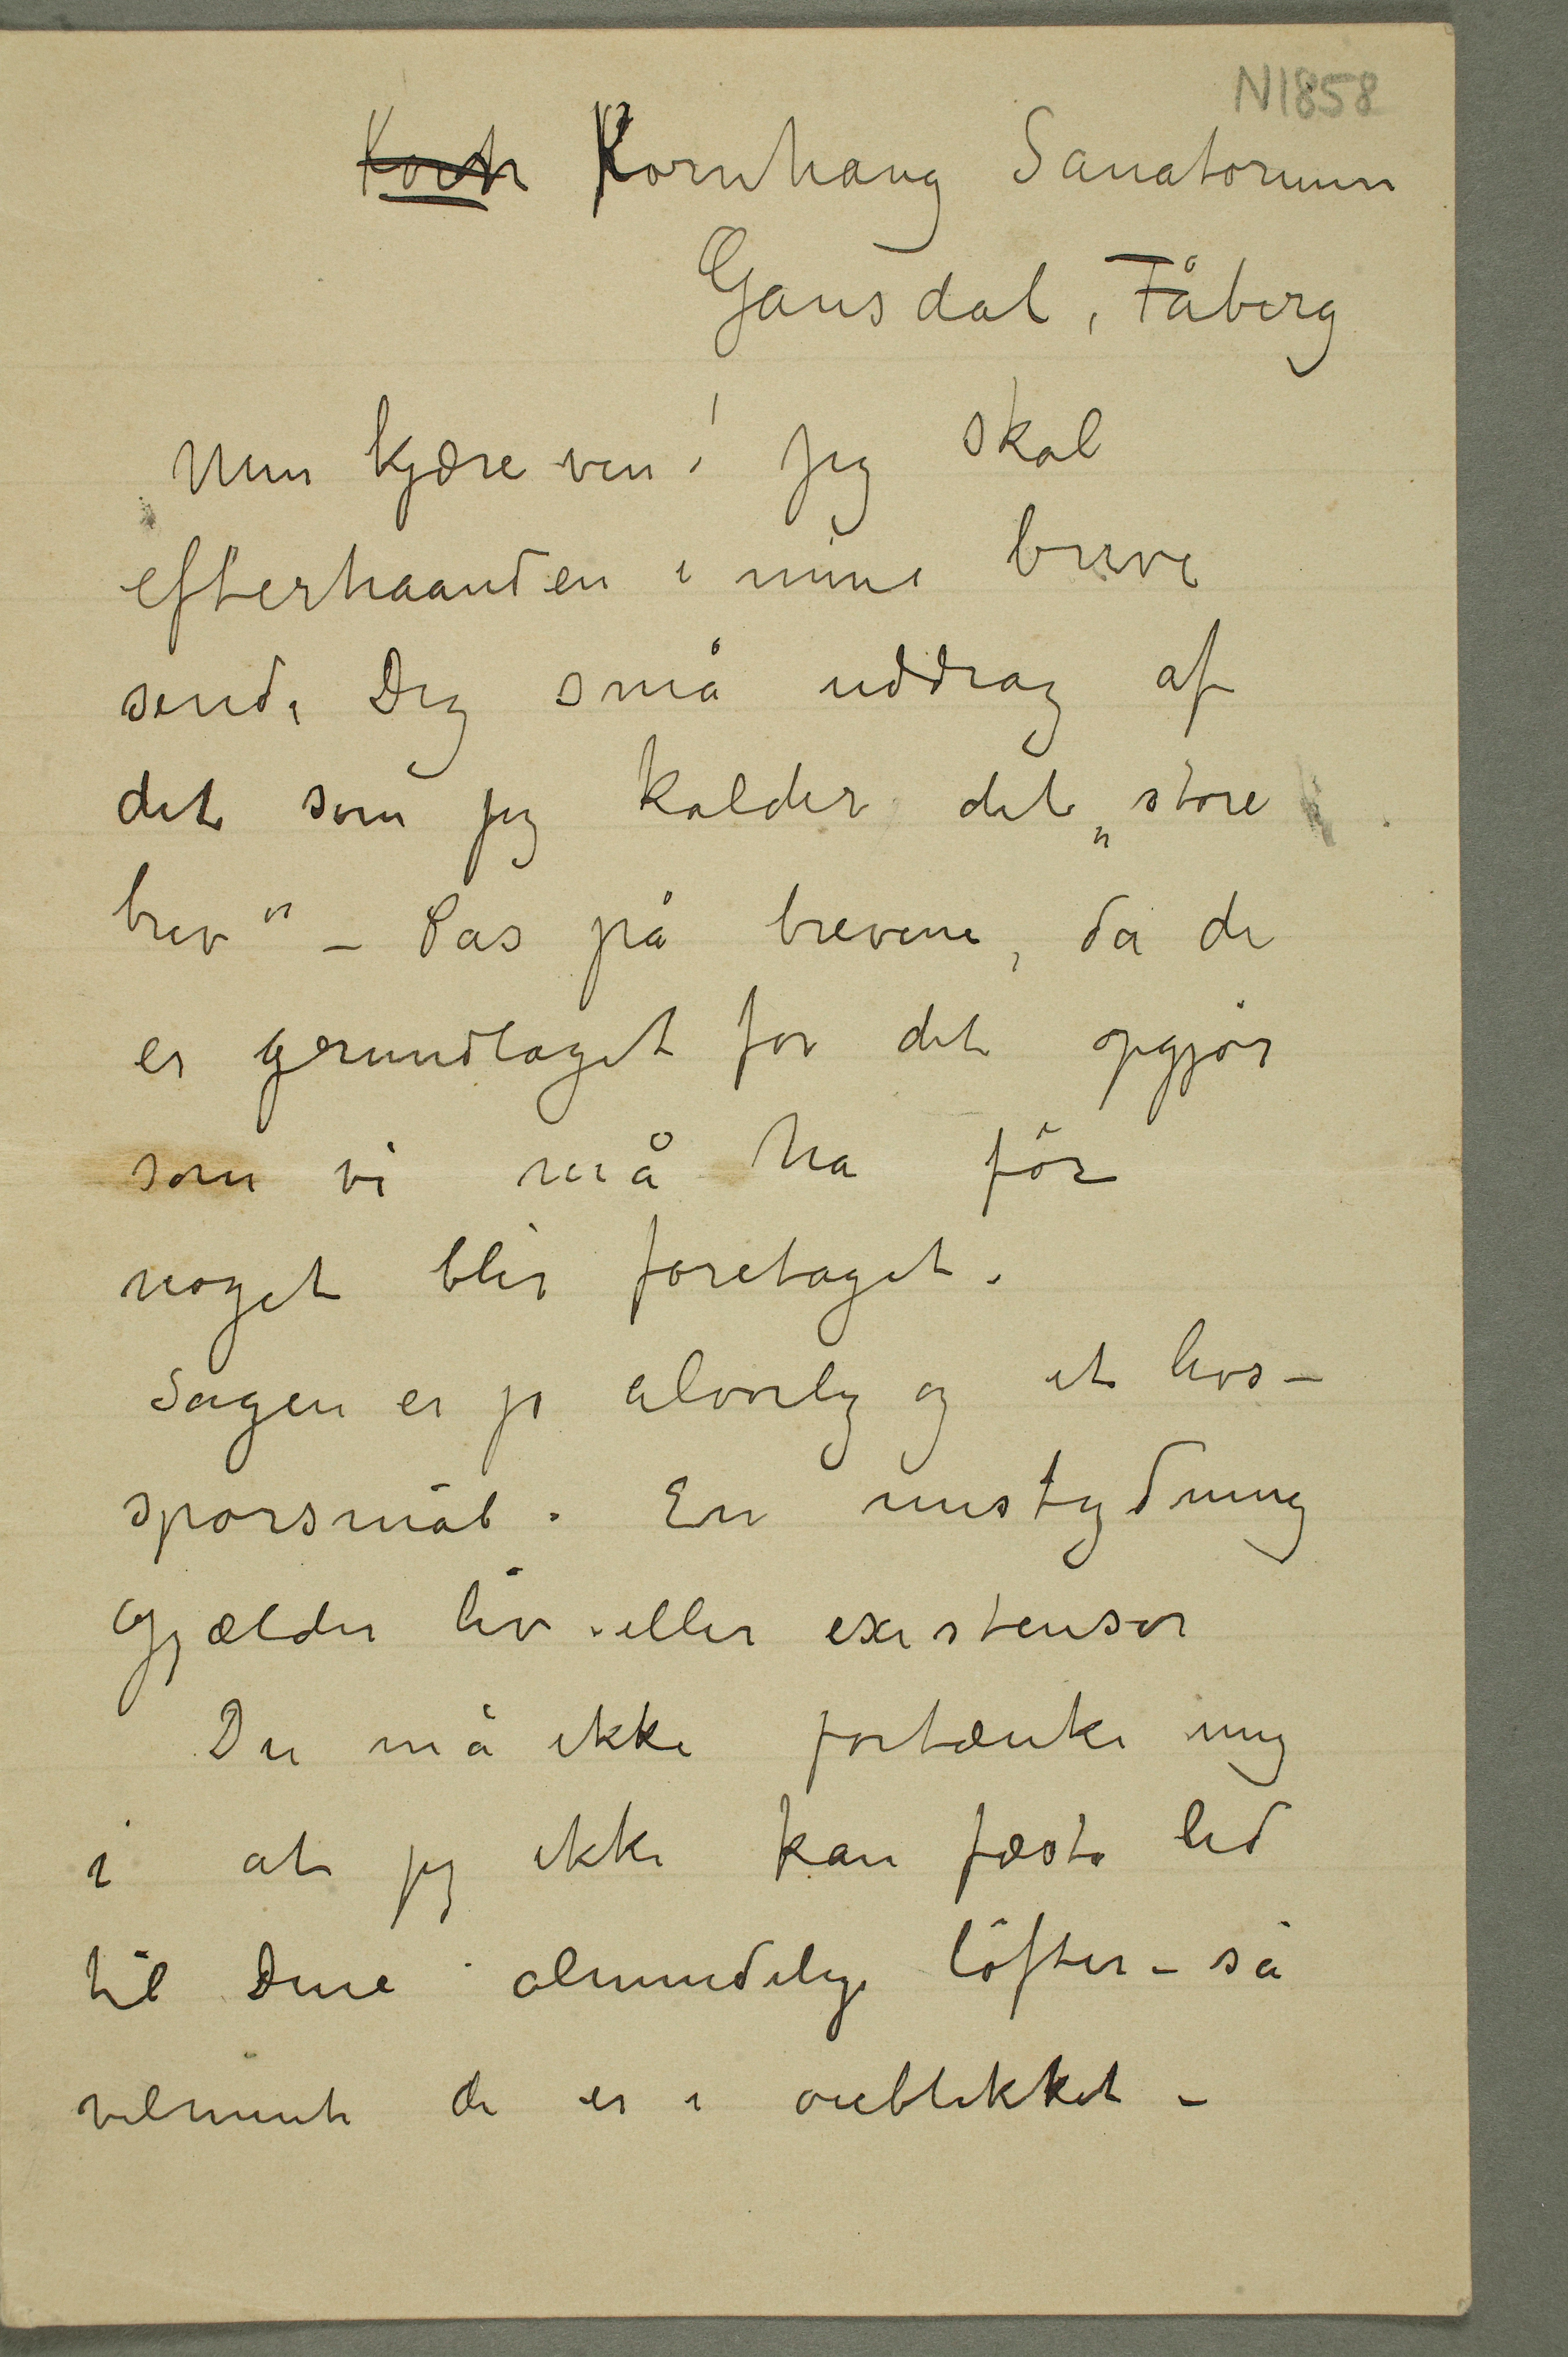 N1858
Kornhaug Sanatorium
Gausdal, Fåberg
Min kjære ven! Jeg skal
efterhaanden i mine breve
sende Dig små uddrag af
det som jeg kalder det „store
brev“ – Pas på brevene, da de
er grundlaget for det opgjør
som vi må ha för
noget blir foretaget.
Sagen er jo alvorlig og et livs–
spørsmål. En mistydning
gjælder liv eller existenser
Du må ikke fortænke mig
i at jeg ikke kan fæste lid
til Dine almindelige löfter – så
velmente de er i øieblikket –